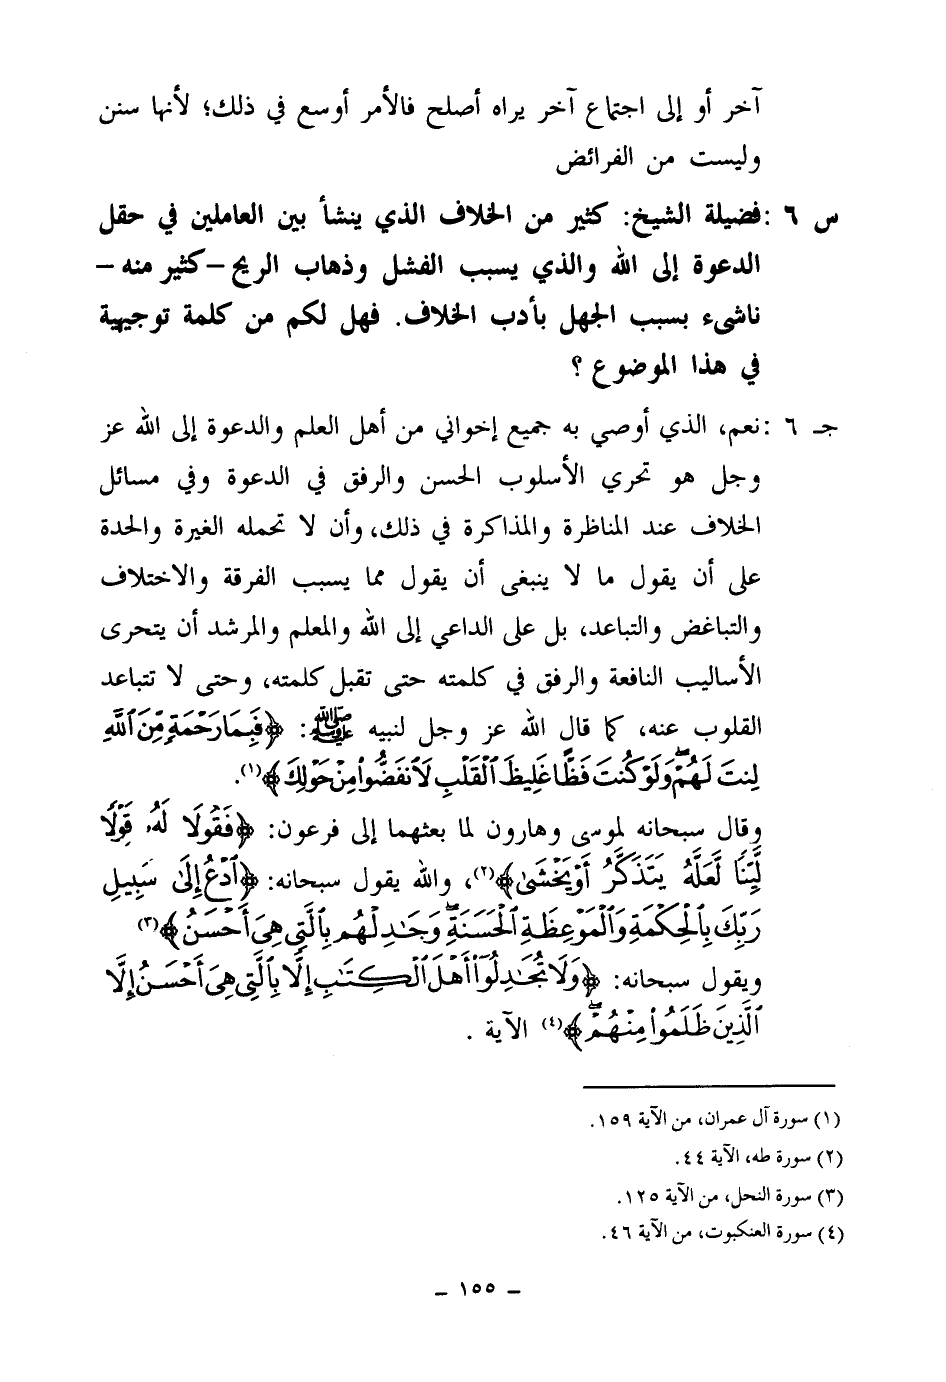 آخر أو إلى اجتماع آخر يراه أصلح فالأمر أوسع في ذلك؛ لأنها سنن
وليست من الفرائض
س ٦ :فضيلة الشيخ: كثير من الخلاف الذي ينشأ بين العاملين في حقل
الدعوة إلى الله والذي يسبب الفشل وذهاب الريح –كثير منه–
ناشىء بسبب الجهل بأدب الخلاف. فهل لكم من كلمة توجيهية
في هذا الموضوع ؟
جـ ٦ :نعم، الذي أوصي به جميع إخواني من أهل العلم والدعوة إلى الله عز
وجل هو تحري الأسلوب الحسن والرفق في الدعوة وفي مسائل
الخلاف عند المناظرة والمذاكرة في ذلك، وأن لا تحمله الغيرة والحدة
على أن يقول ما لا ينبغي أن يقول مما يسبب الفرقة والاختلاف
والتباغض والتباعد، بل على الداعي إلى الله والمعلم والمرشد أن يتحرى
الأساليب النافعة والرفق في كلمته حتى تقبل كلمته، وحتى لا تتباعد
القلوب عنه، كما قال الله عز وجل لنبيه ﷺ: ﴿فَبِمَا رَحْمَةٍ مِّنَ ٱللَّهِ
لِنتَ لَهُمْ ۖ وَلَوْ كُنتَ فَظًّا غَلِيظَ ٱلْقَلْبِ لَٱنفَضُّوا۟ مِنْ حَوْلِكَ﴾(١).
وقال سبحانه لموسى وهارون لما بعثهما إلى فرعون: ﴿فَقُولَا لَهُۥ قَوْلًا
لَّيِّنًا لَّعَلَّهُۥ يَتَذَكَّرُ أَوْ يَخْشَىٰ﴾(٢)، والله يقول سبحانه: ﴿ٱدْعُ إِلَىٰ سَبِيلِ
رَبِّكَ بِٱلْحِكْمَةِ وَٱلْمَوْعِظَةِ ٱلْحَسَنَةِ ۖ وَجَٰدِلْهُم بِٱلَّتِى هِىَ أَحْسَنُ﴾(٣)
ويقول سبحانه: ﴿وَلَا تُجَٰدِلُوٓا۟ أَهْلَ ٱلْكِتَٰبِ إِلَّا بِٱلَّتِى هِىَ أَحْسَنُ إِلَّا
ٱلَّذِينَ ظَلَمُوا۟ مِنْهُمْ ۖ﴾(٤) الآية .
(١) سورة آل عمران، من الآية ١٥٩.
(٢) سورة طه، الآية ٤٤.
(٣) سورة النحل، من الآية ١٢٥.
(٤) سورة العنكبوت، من الآية ٤٦.
– ١٥٥ –